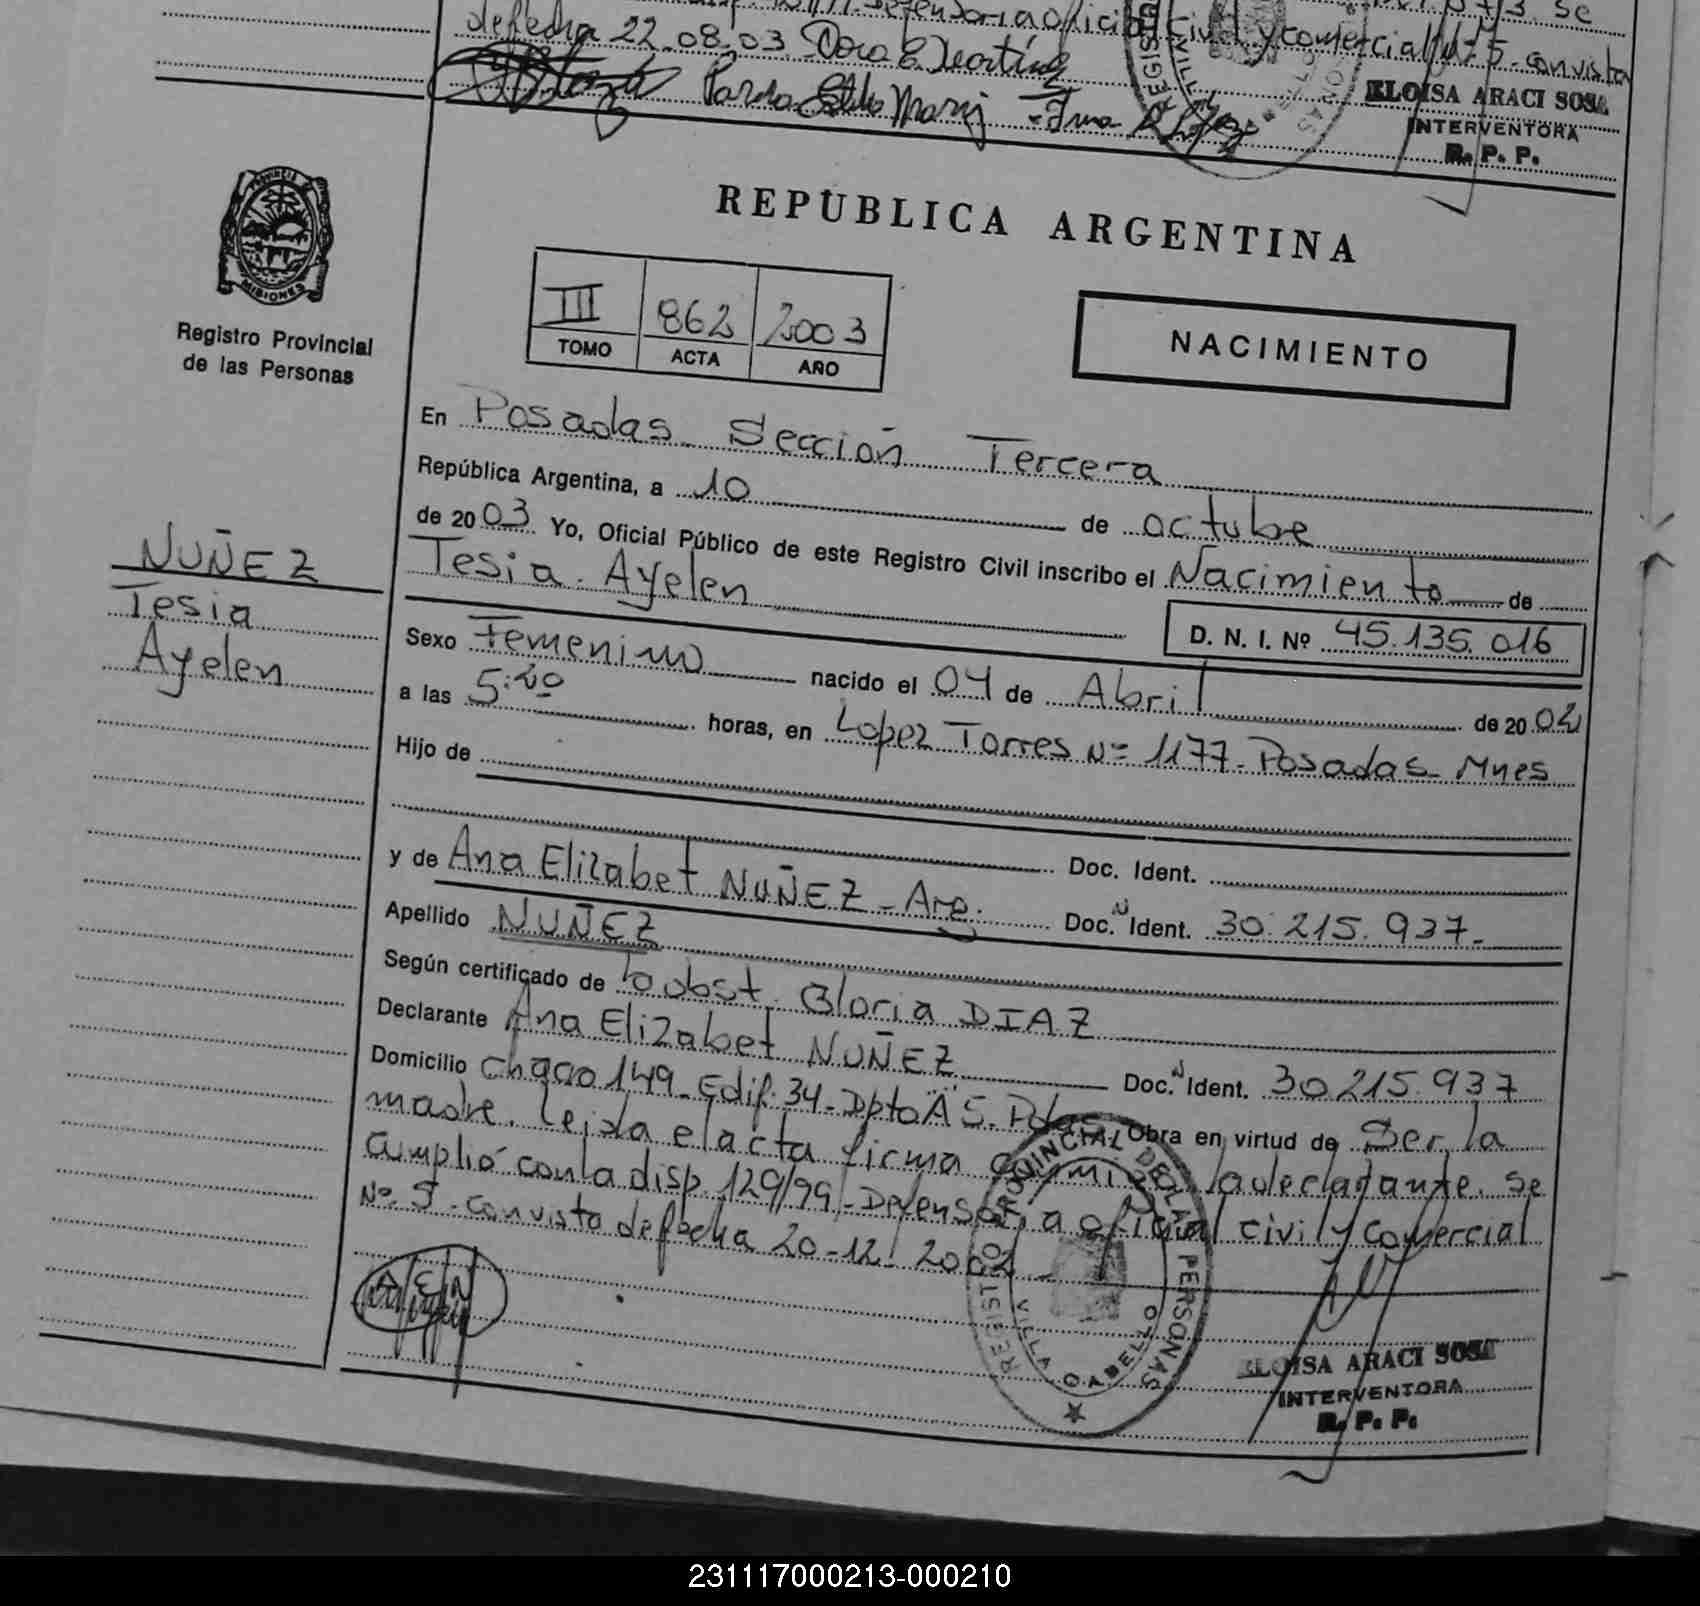 defecha 22-08-03
ELOISA ARACI SOSA
INTERVENTORA
R. P. P.
PROVINCIA DE
MISIONES
Registro Provincial
de las Personas
REPUBLICA ARGENTINA
III 862 2003
TOMO ACTA AÑO
NACIMIENTO
En Posadas - Sección Tercera
República Argentina, a 10 de octubre
de 2003 Yo, Oficial Público de este Registro Civil inscribo el Nacimiento de
Tesia Ayelen
D. N. I. Nº 45.135.016
NUÑEZ
Tesia
Ayelen
Sexo Femenino nacido el 04 de Abril de 2002
a las 5:20 horas, en Lopez Torres Nº 1177 - Posadas - Mnes
Hijo de
Doc. Ident.
y de Ana Elizabet NUÑEZ - Arg. Doc. N Ident. 30.215.937-
Apellido NUÑEZ
Según certificado de obst. Gloria DIAZ
Declarante Ana Elizabet NUÑEZ Doc. N Ident. 30.215.937
Domicilio Chaco 149 - Edif. 34 - Dpto "A" 5 - Pdas Obra en virtud de Ser la
madre. leida el acta firma conmigo la declarante. Se
cumplió con la disp. 129/99 - Defensoria oficial civil y comercial
Nº 5 - con vista de fecha 20-12-2002 -
A E N
REGISTRO PROVINCIAL DE LAS PERSONAS
VILLA CABELLO
ELOISA ARACI SOSA
INTERVENTORA
R. P. P.
231117000213-000210